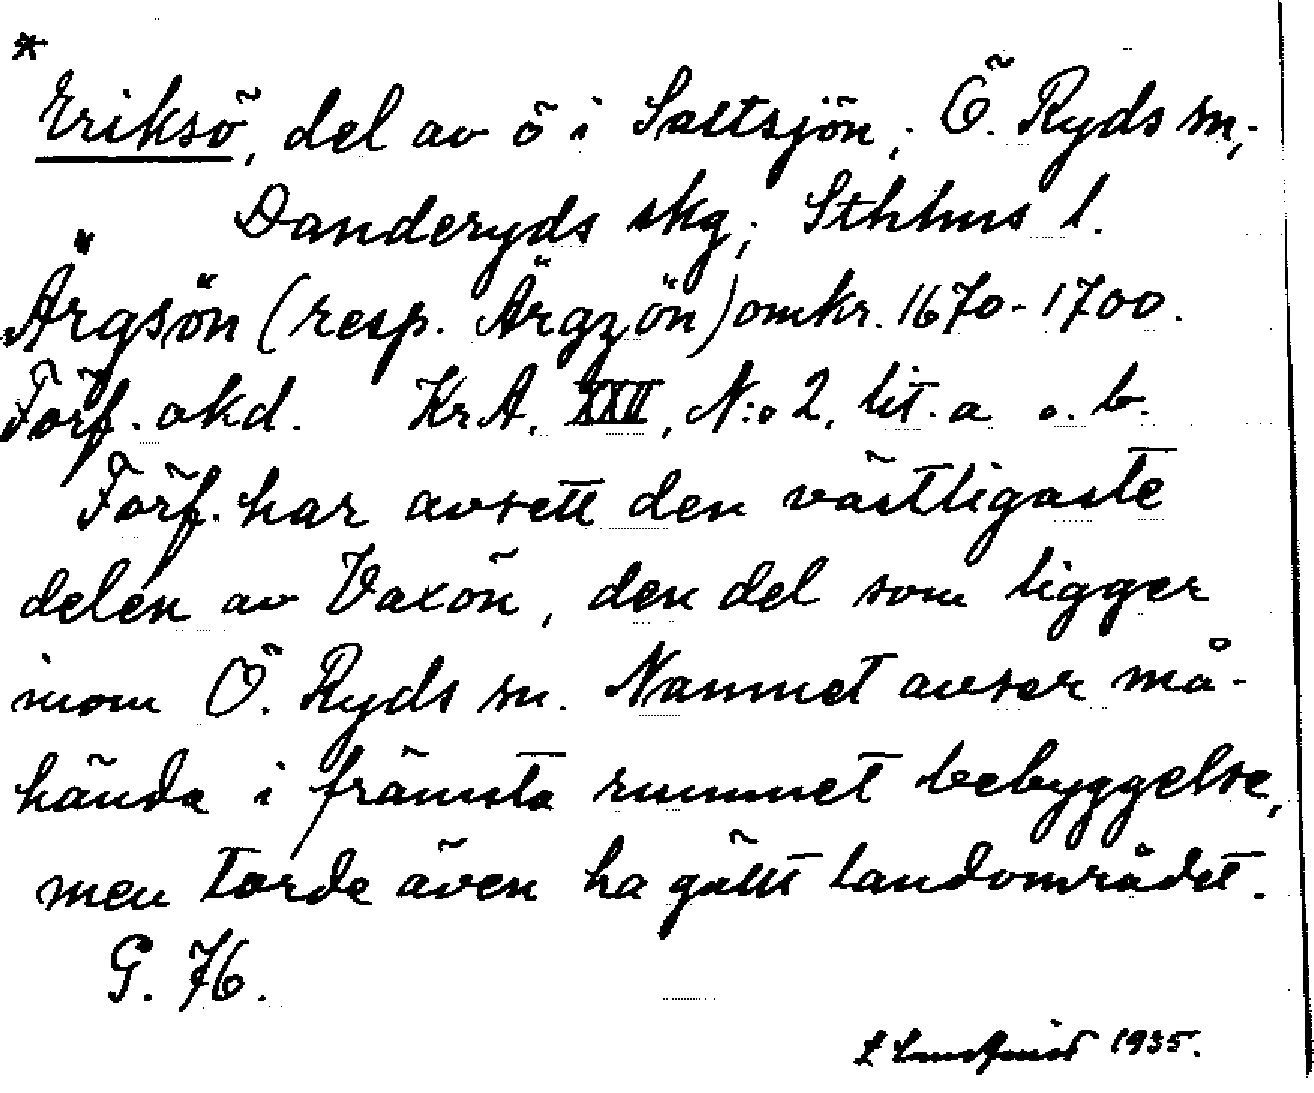 *
Eriksö, del av ö i Saltsjön; Ö. Ryds sn,
Danderyds skg; Sthlms l.
Ärgsön (resp. Ärgzön) omkr. 1670-1700.
Förf. okd. KrA. XXII, N:o 2, lit. a o. b.
Förf. har avsett den västligaste
delen av Vaxön, den del som ligger
inom Ö. Ryds sn. Namnet avser må-
hända i främsta rummet bebyggelse,
men torde även ha gällt landområdet.
G. 76.
1935.